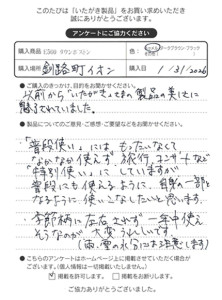 このたびは「いたがき製品」をお買い求めいただき
誠にありがとうございます。
アンケートにご協力ください
購入商品 E588 ラウンドストン 色 ダークブラウン・ブラック
購入場所 釧路町イオン 購入日 1/31/2026
●ご購入のきっかけ、目的をお聞かせください。
以前から "いたがき" さまの製品の美しさに
魅せられていました。
●製品についてのご意見・ご感想・ご要望などをお聞かせください。
・"普段使い"には、もったいなくて
なかなか使えず、旅行、コンサートなど
"特別使い"にしていますが
普段にも使えるように、自身の一部と
なるように、使いこなしたいと思います。
・季節柄に左右されず一年中使え
そうなのが大変うれしいです。
(雨、雪の水分には注意します)
●こちらのアンケートはホームページ上に掲載させていただく場合が
ございます。(個人情報は一切掲載いたしません。)
掲載を許可します。 掲載をお断りします。
ご協力ありがとうございました。